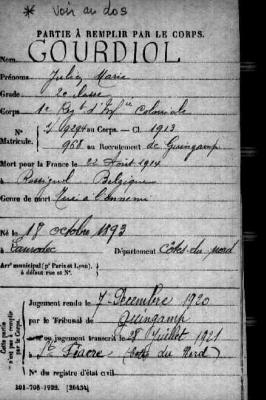 * Voir au dos
PARTIE À REMPLIR PAR LE CORPS.
Nom GOURDIOL
Prénoms Jules Marie
Grade 2e classe
Corps 1er Régt d'Inf ie Coloniale
N° au Corps. — Cl. 1913
Matricule. 968 au Recrutement de Guingamp
Mort pour la France le 22 Août 1914
à Rossignol Belgique
Genre de mort Tué à l'Ennemi
Né le 18 octobre 1893
à Département Côtes du Nord
Arrt municipal (pr Paris et Lyon),
à défaut rue et N°.
Cette partie
n'est pas à remplir
par le Corps.
Jugement rendu le 7 Décembre 1920
par le Tribunal de Guingamp
ou jugement transcrit le 28 Juillet 1921
à St Fiacre (Côtes du Nord)
N° du registre d'état civil
101-708-1922. [26434]